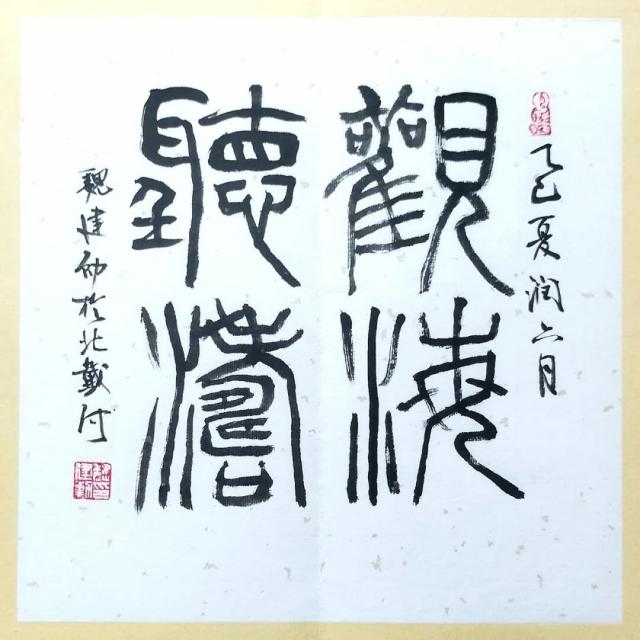 乙巳夏润六月
觀海
聽濤
魏建勋於北戴河